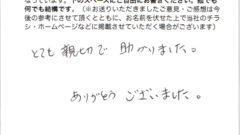 なっています。下のスペースにご自由にお書きください。絵でも
何でも結構です。（※お送りいただきましたご意見・ご感想は今
後の参考にさせて頂くとともに、お名前を伏せた上で当社のチラ
シ・ホームページなどに掲載させていただく場合がございます）
とても親切で助かりました。
ありがとうございました。